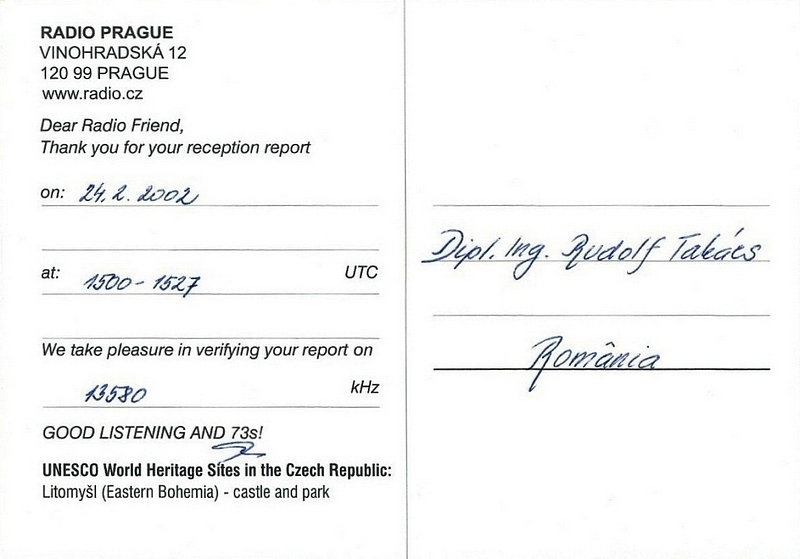 RADIO PRAGUE
VINOHRADSKÁ 12
120 99 PRAGUE
www.radio.cz
Dear Radio Friend,
Thank you for your reception report
on: 24. 2. 2002
at: 1500 - 1527 UTC
We take pleasure in verifying your report on
13580 kHz
GOOD LISTENING AND 73s!
UNESCO World Heritage Sites in the Czech Republic:
Litomyšl (Eastern Bohemia) - castle and park
Dipl. Ing. Rudolf Takács
România